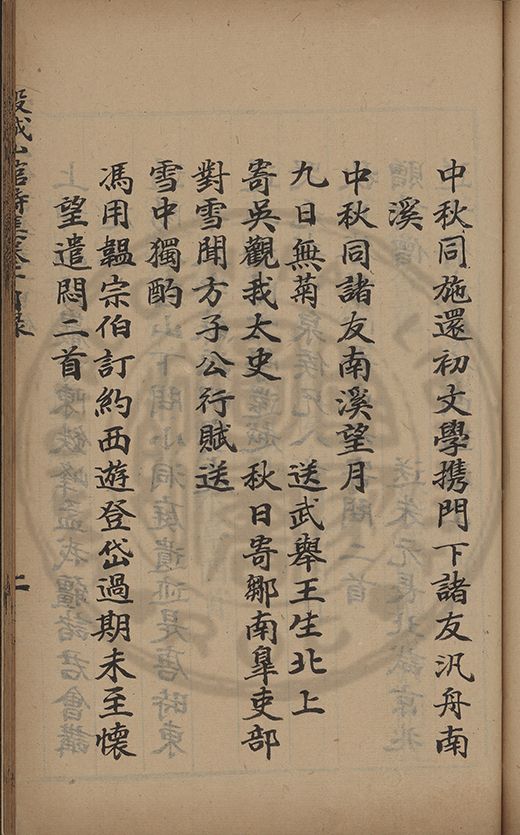 中秋同施還初文學攜門下諸友汎舟南
溪
中秋同諸友南溪望月
九日無菊　送武舉王生北上
寄吳觀我太史　秋日寄鄒南臯吏部
對雪聞方子公行賦送
雪中獨酌
馮用韞宗伯訂約西遊登岱過期未至懷
望遣悶二首